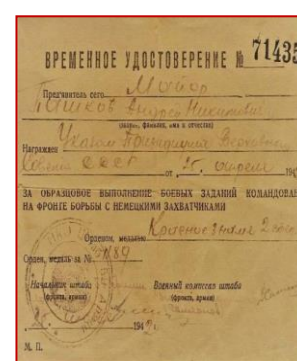 ВРЕМЕННОЕ УДОСТОВЕРЕНИЕ № 71435
Предъявитель сего Майор
Пашков Андрей Никитович
(звание, фамилия, имя и отчество)
Награжден Указом Президиума Верховно
Совета СССР от 25 апреля 194
ЗА ОБРАЗЦОВОЕ ВЫПОЛНЕНИЕ БОЕВЫХ ЗАДАНИЙ КОМАНДОВАН
НА ФРОНТЕ БОРЬБЫ С НЕМЕЦКИМИ ЗАХВАТЧИКАМИ
Орденом, медалью Красное Знамя
Орден, медаль за №
Начальник штаба Военный комиссар штаба
(фронта, армии) (фронта, армии)
194
М. П.